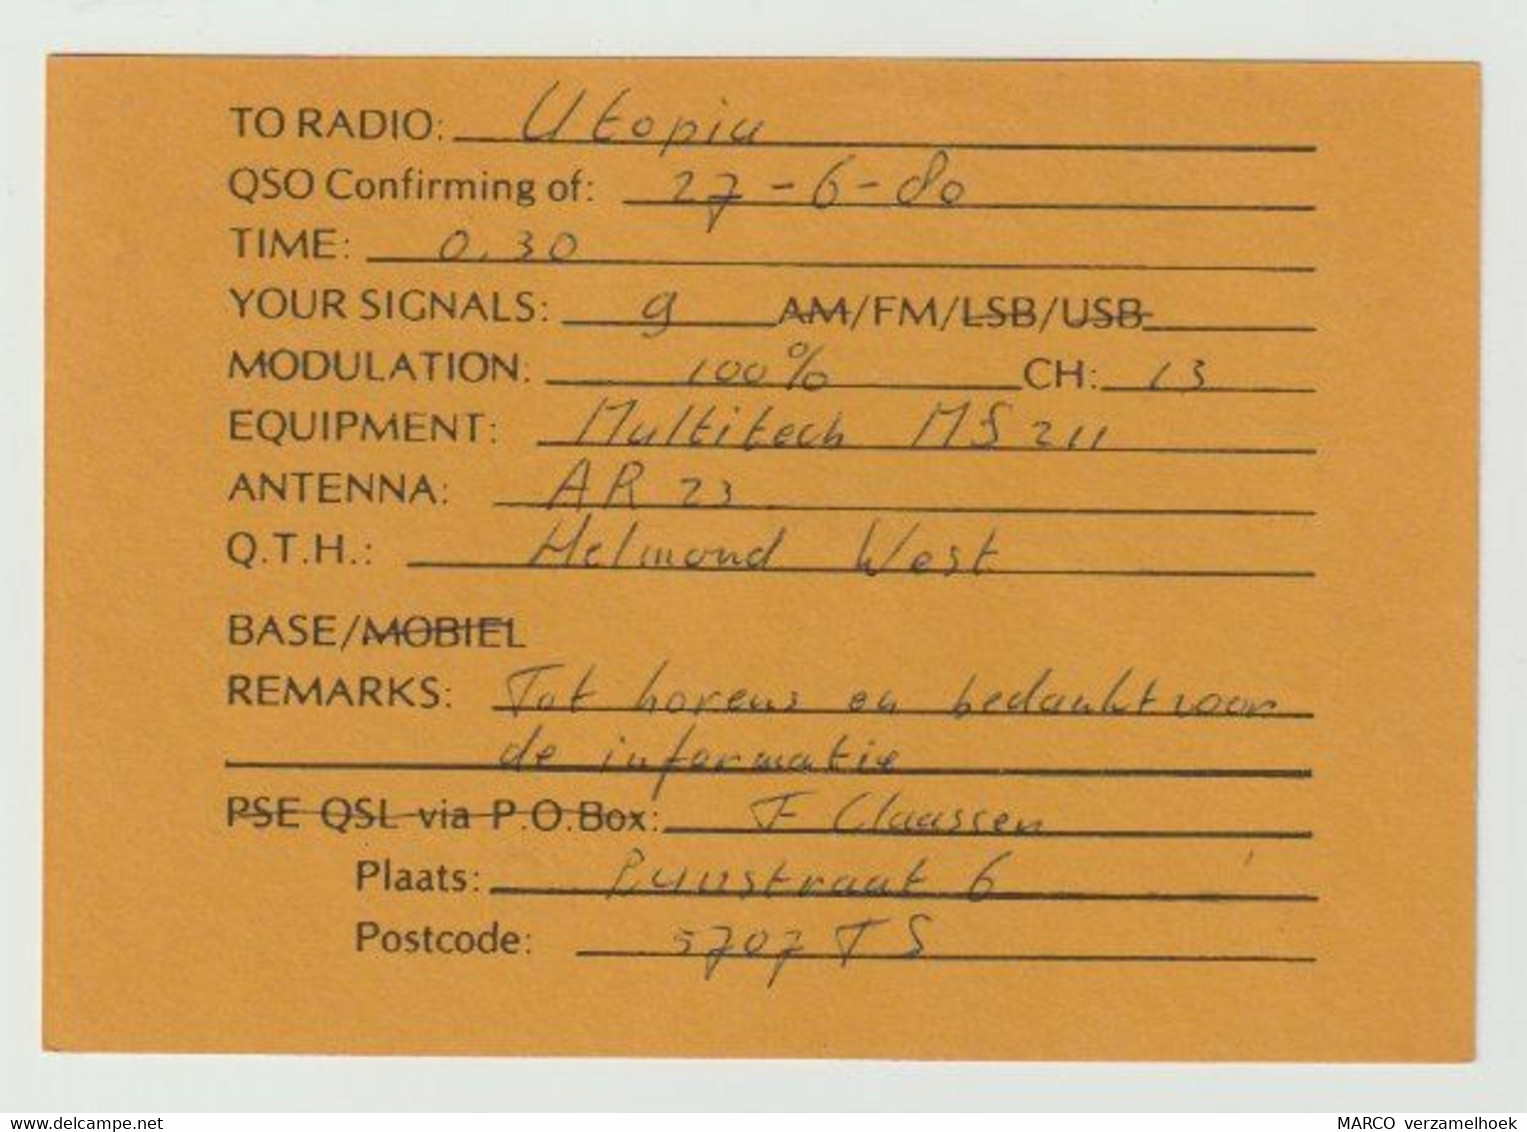 TO RADIO: Utopia
QSO Confirming of: 27-6-80
TIME: 0.30
YOUR SIGNALS: 9 AM/FM/LSB/USB
MODULATION: 100% CH: 13
EQUIPMENT: Multitech MS 211
ANTENNA: AR 23
Q.T.H.: Helmond West
BASE/MOBIEL
REMARKS: Tot horens en bedankt voor
de informatie
PSE QSL via P.O.Box: F Claassen
Plaats: 6
Postcode: 5707 TS
MARCO verzamelhoek